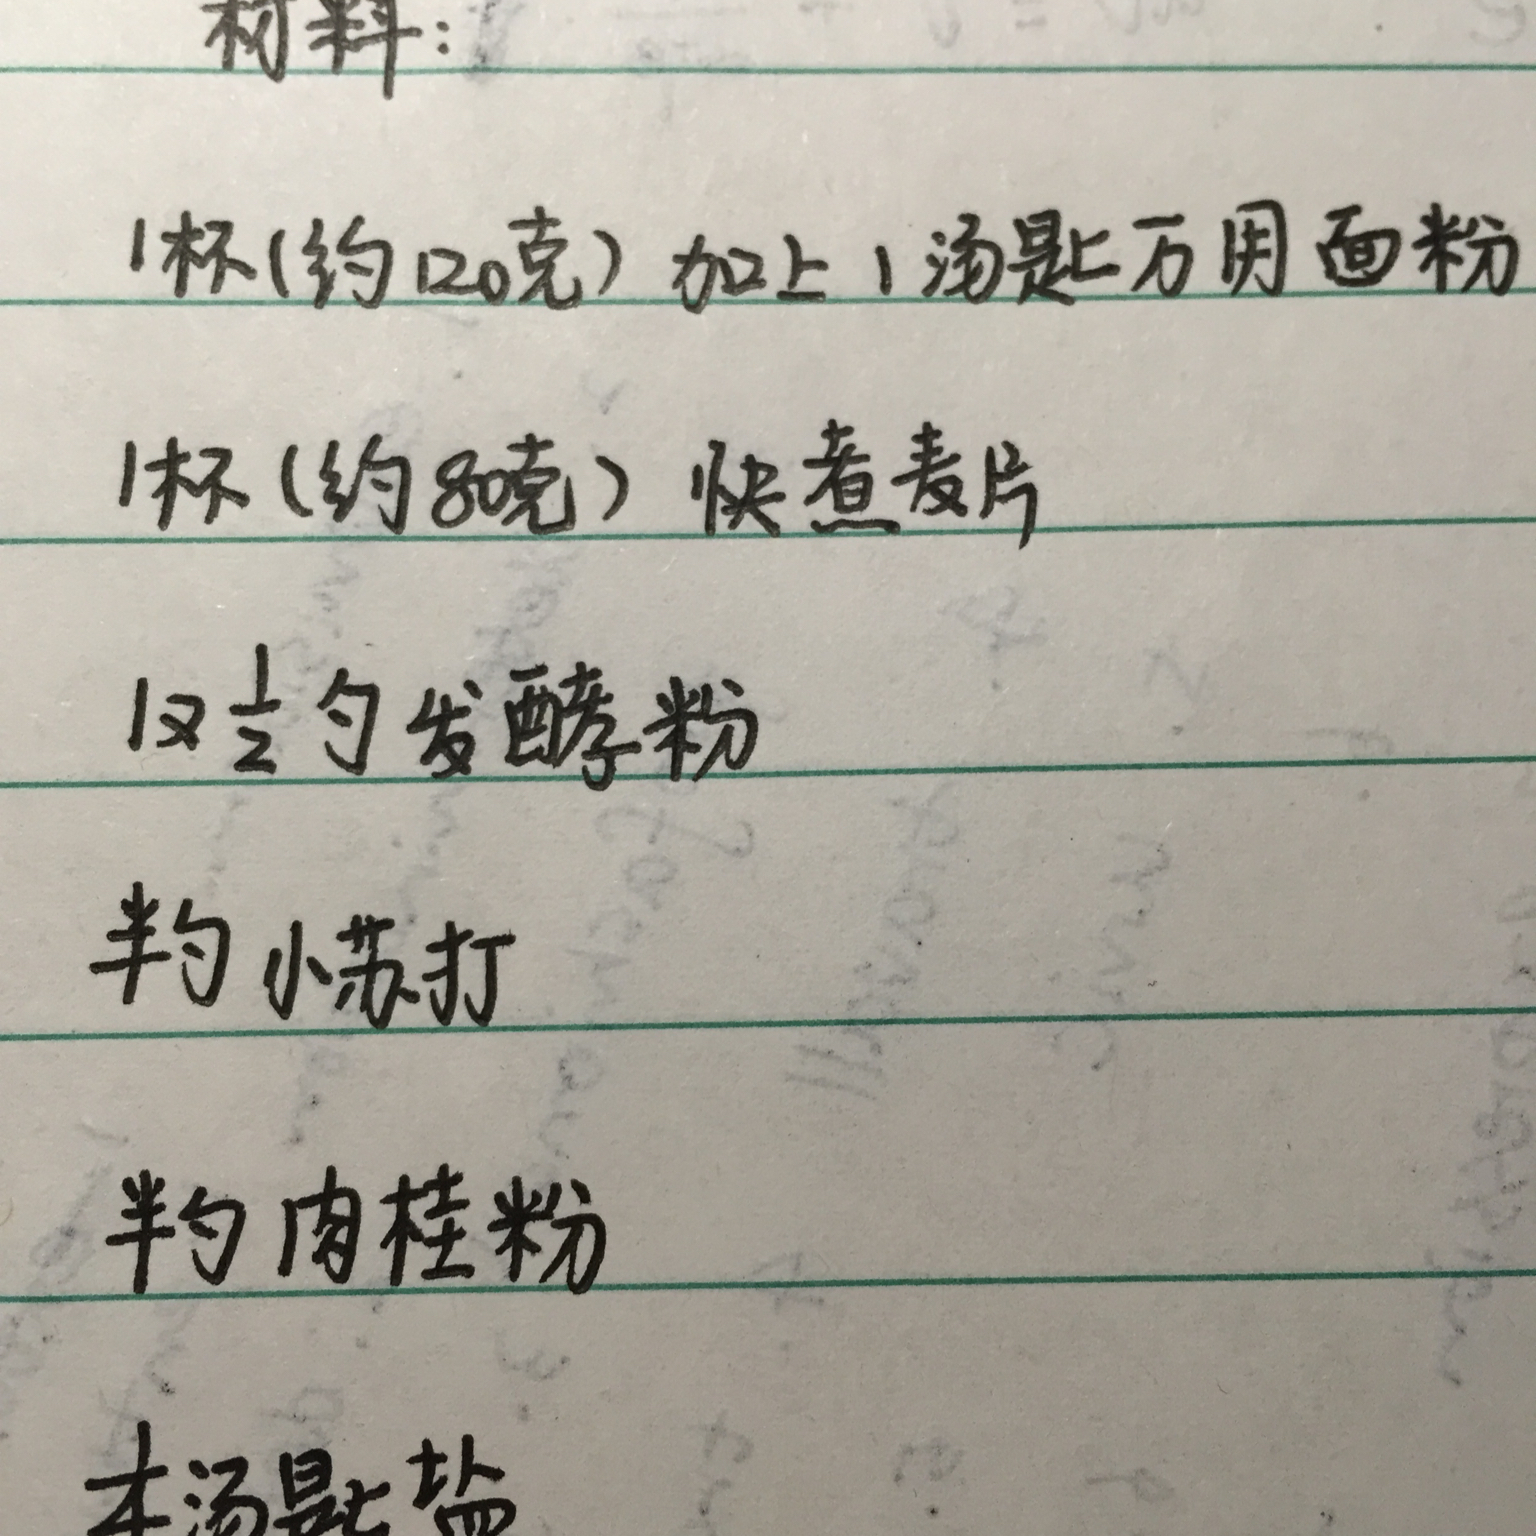 材料：
1杯（约120克）加上1汤匙万用面粉
1杯（约80克）快煮麦片
1又1/2勺发酵粉
半勺小苏打
半勺肉桂粉
汤匙盐